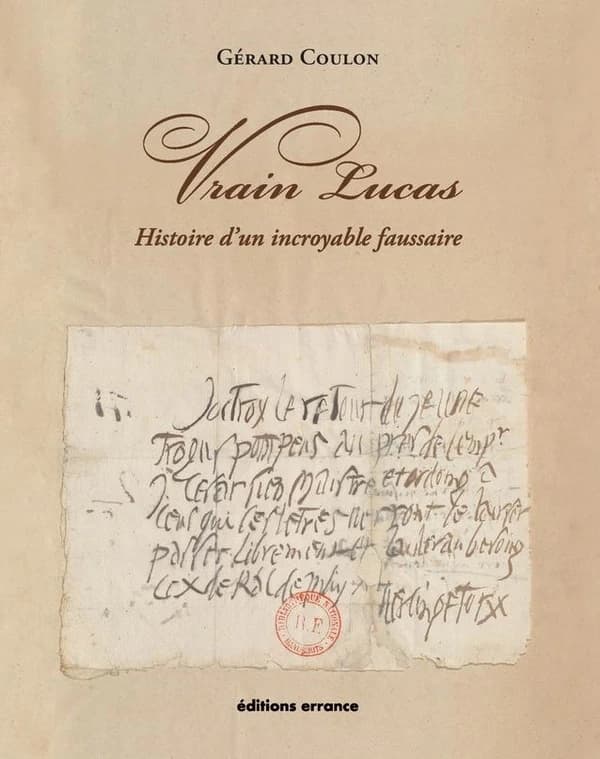 GÉRARD COULON
Vrain Lucas
Histoire d'un incroyable faussaire
Joctroy le retour du jeune
Trogus pompeus au pres de lempr
J. Cesar sien maistre et ordong a
ceux qui ces letres verront le
passer librement et au besong
ce x de Kal de may
BIBLIOTHÈQUE NATIONALE
R.F.
MANUSCRITS
éditions errance